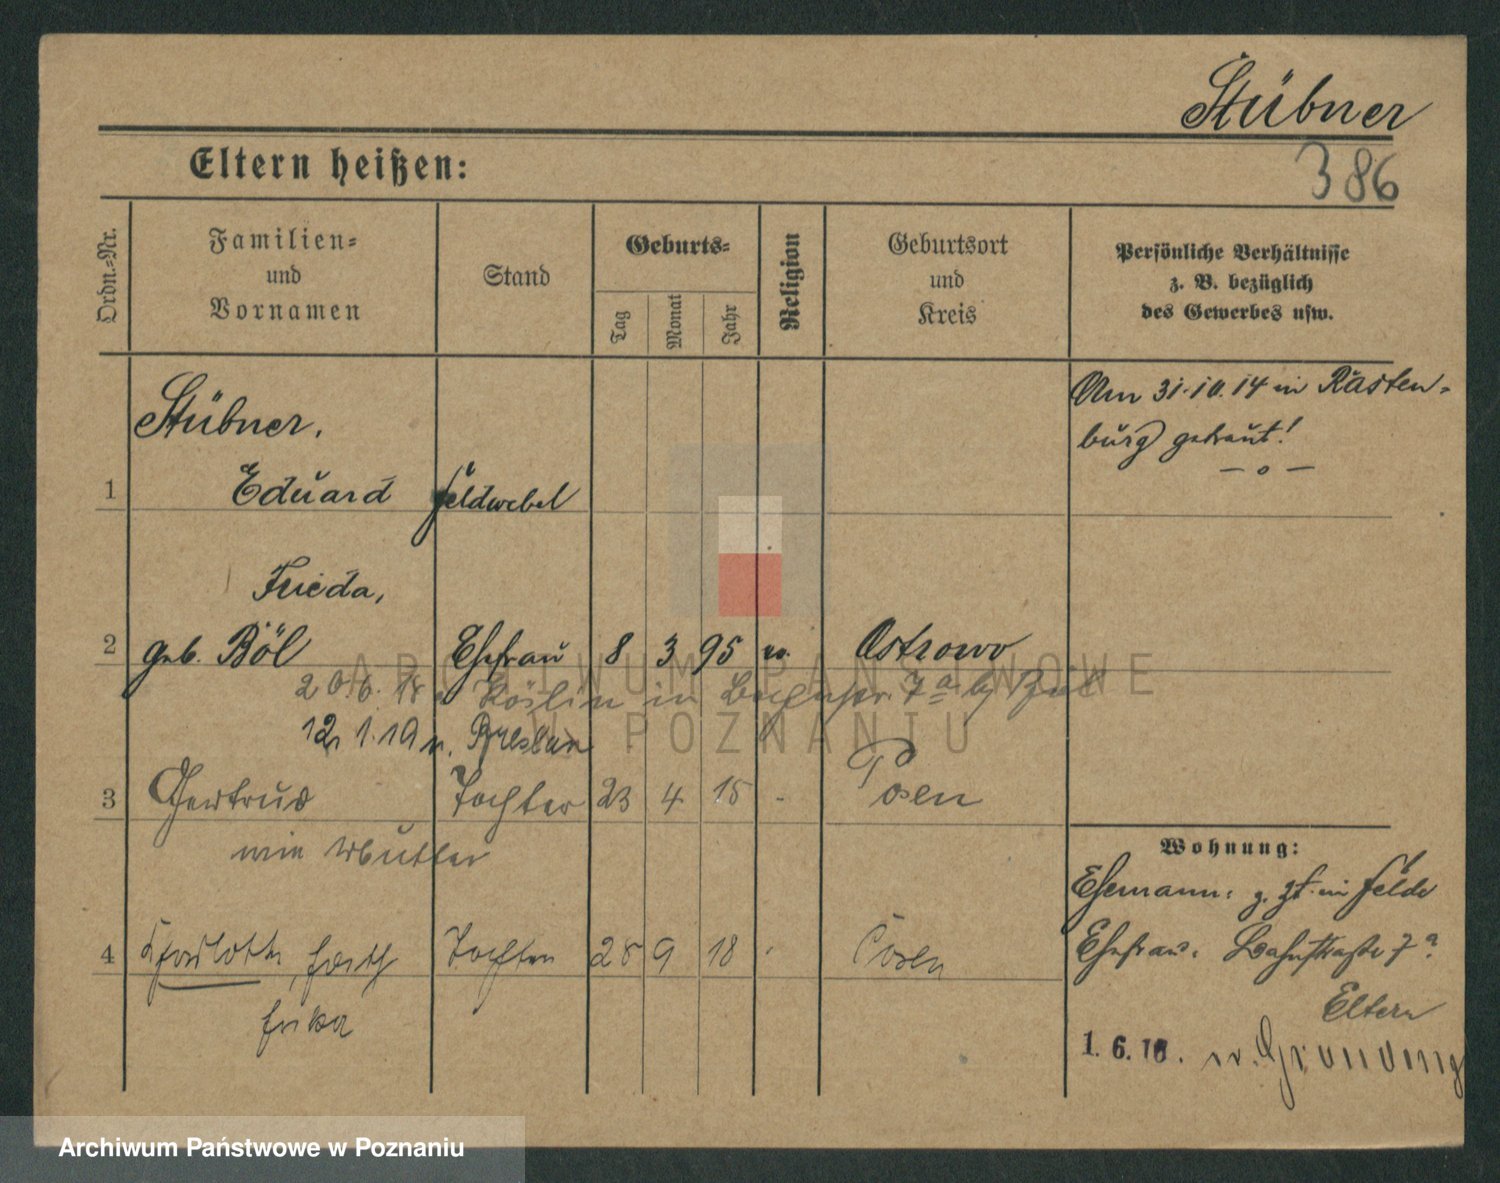 Stübner
386
Eltern heißen:
Ordn.-Nr.
Familien-
und
Vornamen
Stand
Geburts-
Tag
Monat
Jahr
Religion
Geburtsort
und
Kreis
Persönliche Verhältnisse
z. B. bezüglich
des Gewerbes usw.
Stübner,
Am 31.10.14 in Rasten-
burg getraut!
— o —
1 Eduard Feldwebel
Frieda,
2 geb. Böl Ehefrau 8 3 95 Ostrowo
20.6.18 Köslin in 7a
12.1.19 n. Breslau
3 Gertrud Tochter 23 4 15 - Posen
wie Mutter
Wohnung:
Ehemann: z. Zt. im Felde
Ehefrau:
4 Charlotte, Tochter 9 18 Posen
Erika
Eltern
1.6.18.
ARCHIWUM PAŃSTWOWE
W POZNANIU
Archiwum Państwowe w Poznaniu